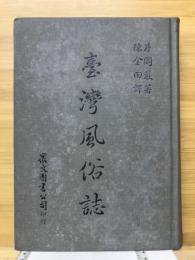 片岡巖著
陳金田譯
臺灣風俗誌
衆文圖書公司印行